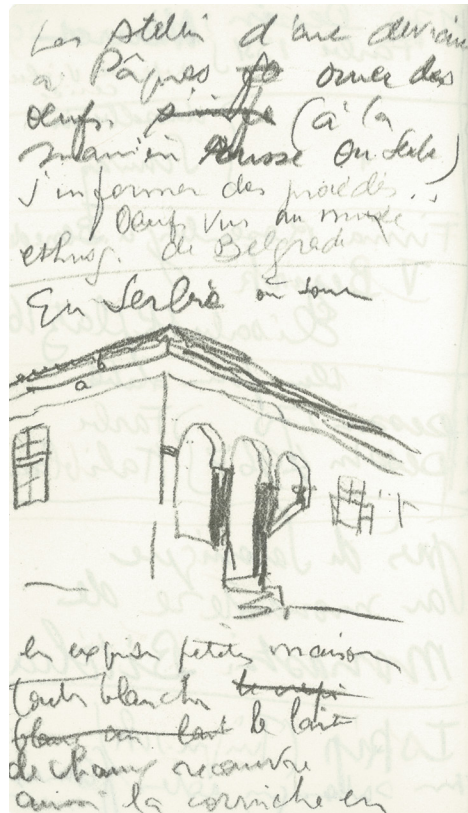 Les Atelier d'art devraient
à Pâques orner des
oeufs (à la
manière Russe ou Serbe)
s'informer des procédés..
Oeufs vus au musée
ethnog. de Belgrade
En Serbie où sont
a b
les exquises petites maisons
toutes blanches le crépi
blanc un lait le lait
de chaux recouvre
aussi la corniche en